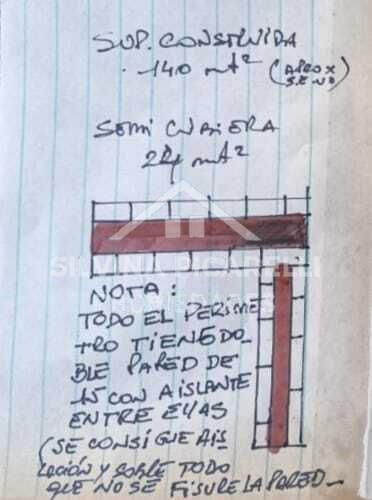 SUP. CONSTRUIDA
140 mt²
SEMI CUBIERTA
24 mt²
NOTA:
TODO EL PERIME
TRO TIENE DO
BLE PARED DE
15 CON AISLANTE
ENTRE ELLAS
(SE CONSIGUE AIS
LACIÓN Y SOBRE TODO
QUE NO SE FISURE LA PARED